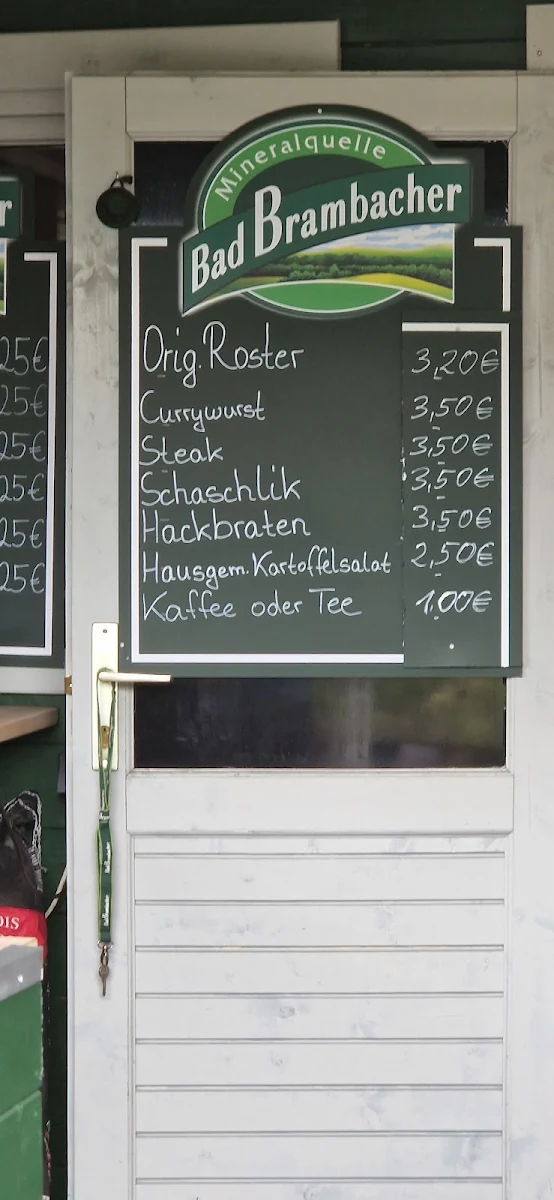 Mineralquelle
Bad Brambacher
Orig. Roster 3,20€
Currywurst 3,50€
Steak 3,50€
Schaschlik 3,50€
Hackbraten 3,50€
Hausgem. Kartoffelsalat 2,50€
Kaffee oder Tee 1,00€
r
25€
25€
25€
25€
25€
25€
OIS